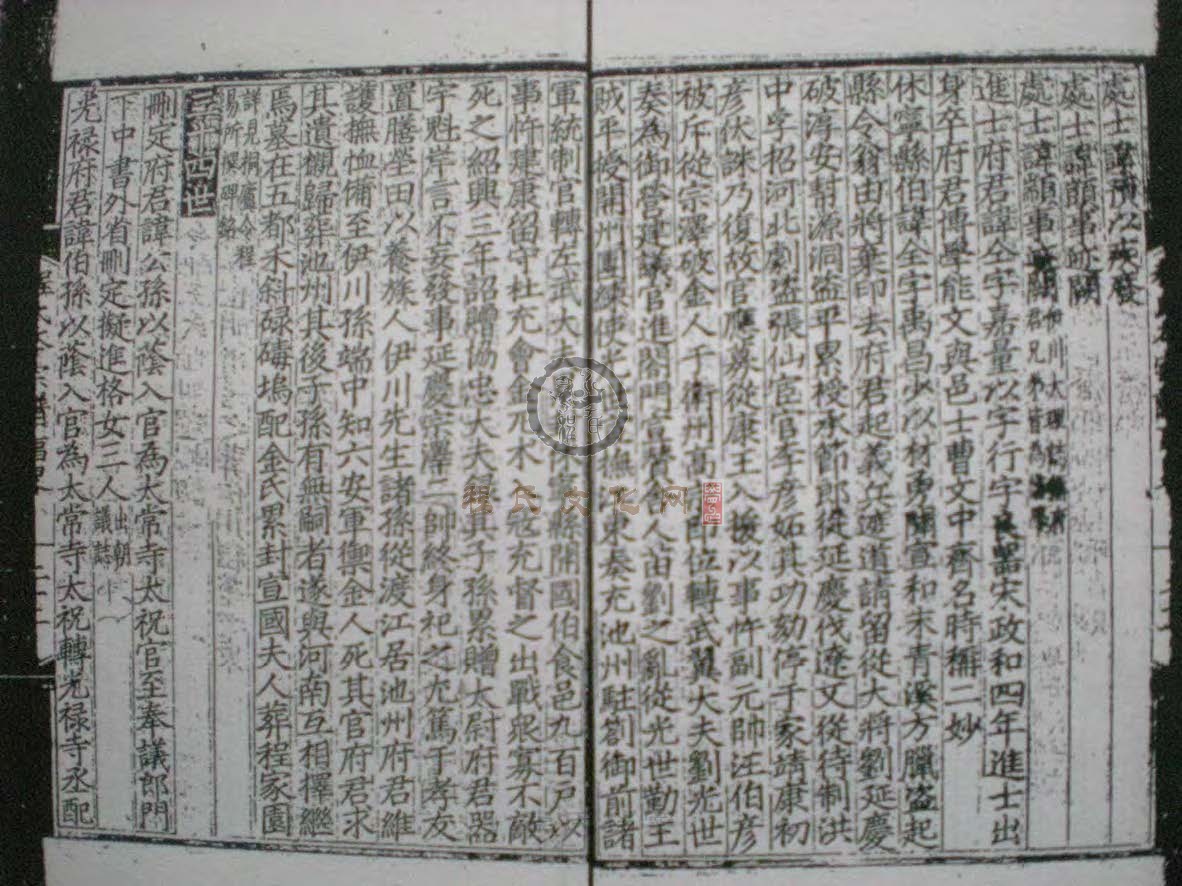 處士諱
處士諱萌事跡闕
處士諱顥事
進士府君諱仝字嘉量小字行字宋政和四年進士出
身卒府君博學能文與邑士曹文中齊名時稱二妙
休寧縣伯諱全字禹昌少以材勇聞宣和末青溪方臘盜起
縣令翁由將棄印去府君起義兵遮道請留從大將劉延慶
破淳安幇源洞盜平累授承節郎從延慶伐遼又從待制洪
中孚招河北劇盜張仙宦官李彥妬其功劾停于家靖康初
彥伏誅乃復故官應募從康王入援以事忤副元帥汪伯彥
被斥從宗澤破金人于衛州高即位轉武翼大夫劉光世
奏為御營建議官進閤門宣贊舍人苗劉之亂從光世勤王
賊平授開州團練使光撫東奏充池州駐劄御前諸
軍統制官轉左武大夫休寧縣開國伯食邑九百戶以
事忤建康留守杜充會金兀朮寇充督之出戰眾寡不敵
死之紹興三年詔贈協忠大夫錄其子孫累贈太尉府君器
宇魁岸言不妄發事延慶宗澤二帥終身祀之尤篤于孝友
置膳塋田以養族人伊川先生諸孫從渡江居池州府君維
護撫恤備至伊川孫端中知六安軍禦金人死其官府君求
其遺櫬歸葬池州其後子孫有無嗣者遂與河南互相擇繼
焉墓在五都禾斜碌磚塢配金氏累封宣國夫人葬程家園
詳見桐廬令程
易所撰碑銘
四世
刪定府君諱公孫以蔭入官為太常寺太祝官至奉議郎門
下中書外省刪定擬進格女二人
光祿府君諱伯孫以蔭入官為太常寺太祝轉光祿寺丞配
程氏文化网